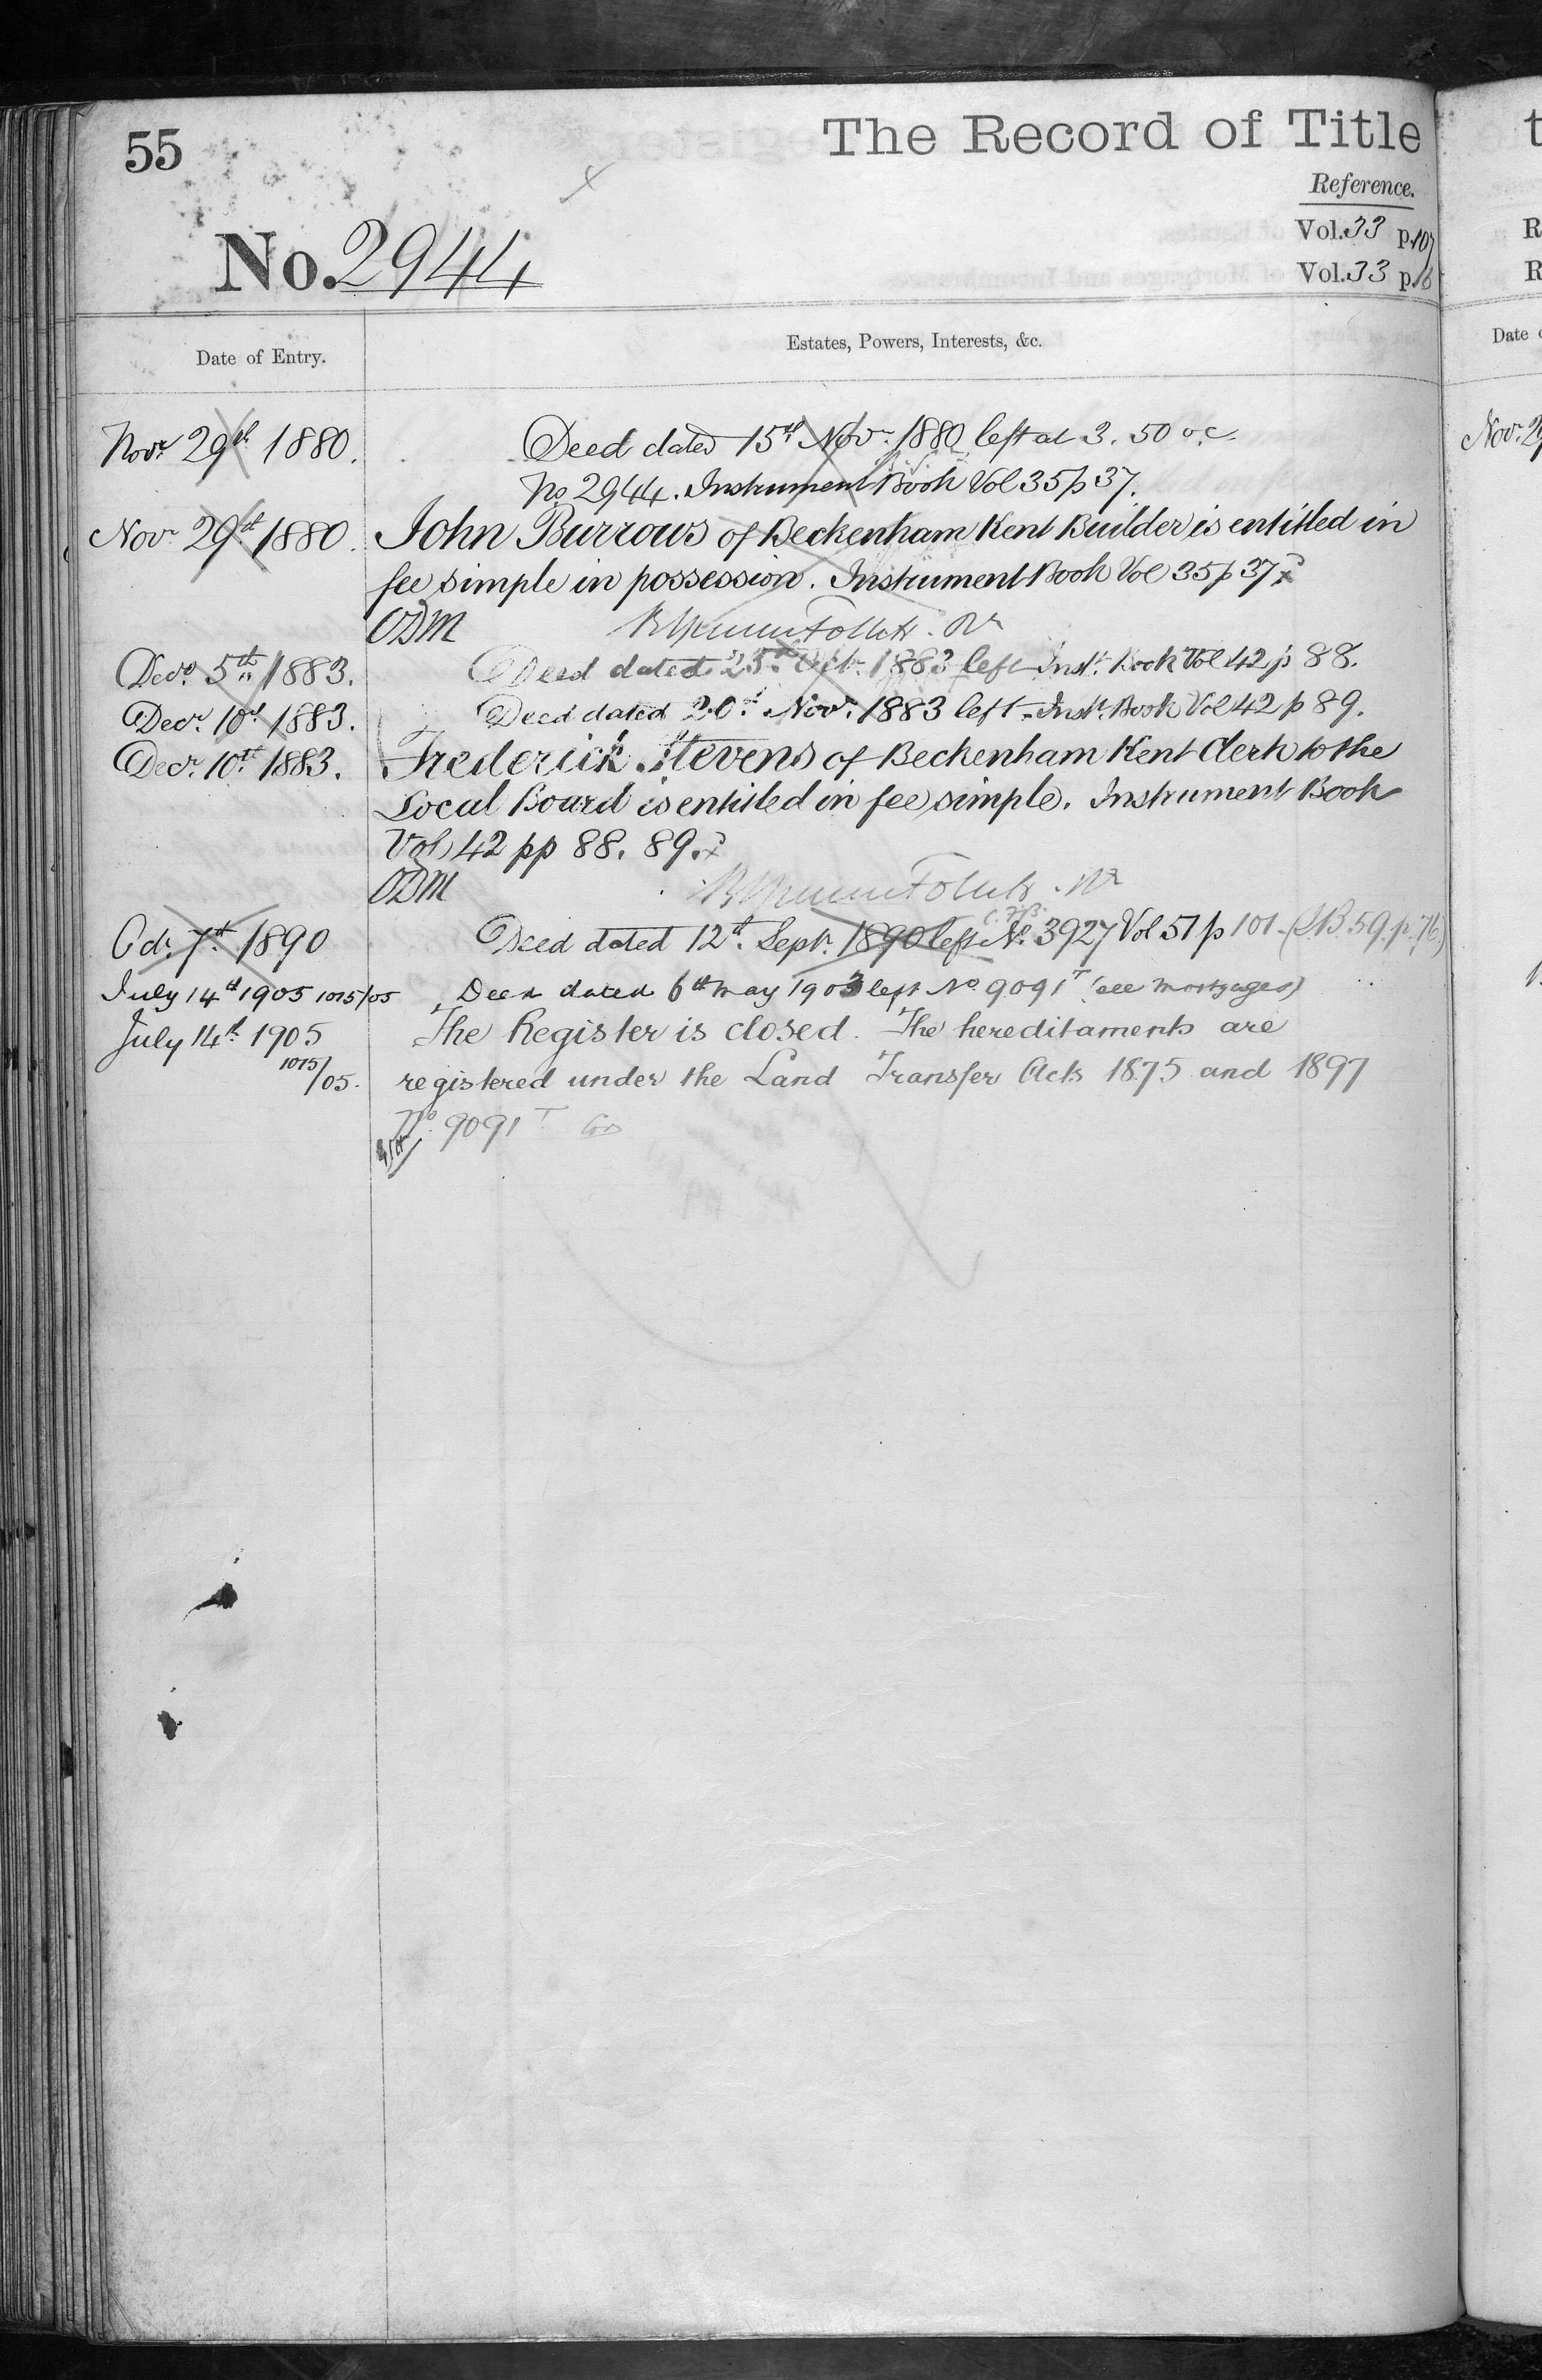 55
The Record of Title
Reference.
Vol. 33 p. 107
Vol. 33 p.
No. 2944
Date of Entry.
Estates, Powers, Interests, &c.
Novr. 29th 1880. Deed dated 15th Novr. 1880 left at 3.50 o,c.
No 2944. Instrument Book Vol 35 p 37.
Novr. 29th 1880. John Burrows of Beckenham Kent Builder is entitled in
fee simple in possession. Instrument Book Vol 35 p 37
ODM
Decr. 5th 1883. Deed dated 25th Octr. 1883 left Inst. Book Vol 42 p 88.
Decr. 10th 1883. Deed dated 30th Novr. 1883 left Inst. Book Vol 42 p 89.
Decr. 10th 1883. Frederick Stevens of Beckenham Kent Clerk to the
Local Board is entitled in fee simple. Instrument Book
Vol 42 pp 88. 89.
ODM
Oct. 7th 1890 Deed dated 12th Septr. 1890 left No. 3927 Vol 51 p 101 - (I.B. 59. p. 76)
July 14th 1905 1015/05 Deed dated 6th May 1903 left No. 9091T (see Mortgages)
July 14th 1905 The Register is closed. The hereditaments are
1015/05. registered under the Land Transfer Acts 1875 and 1897
No. 9091T
t
R
R
Date
Nov.